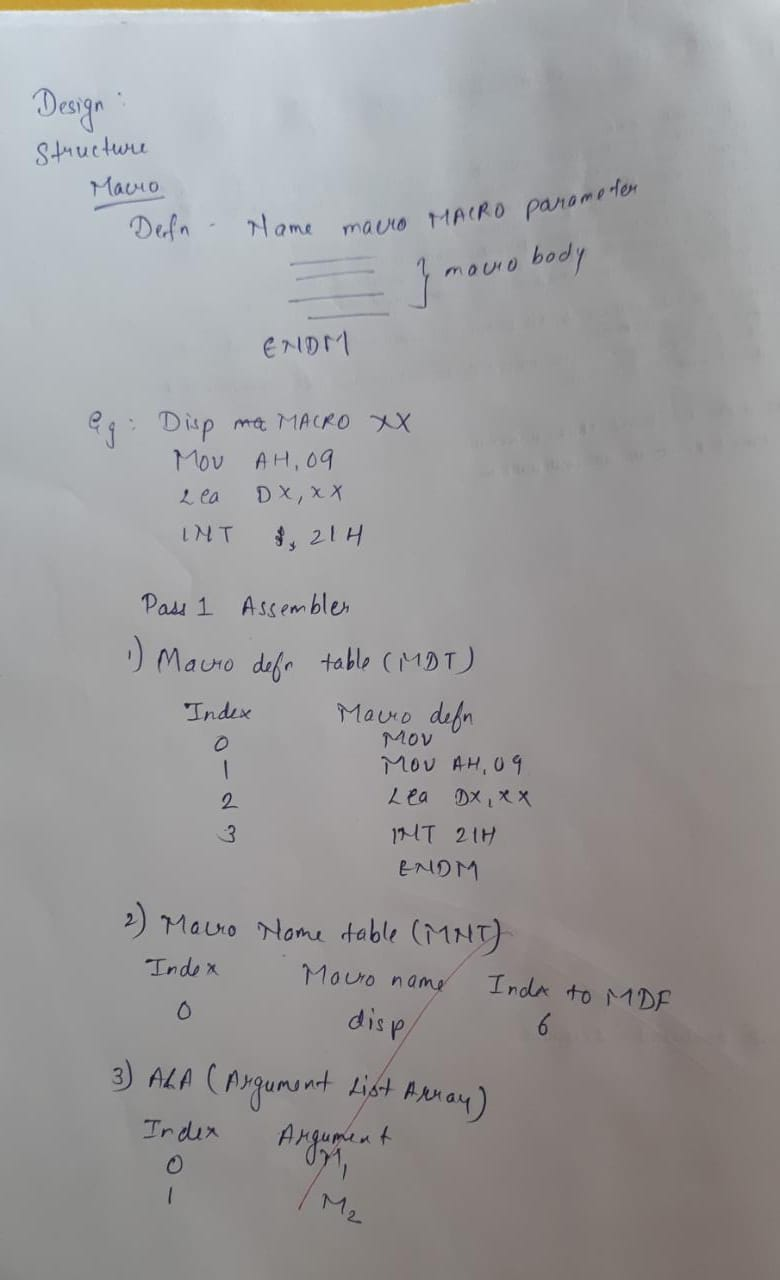 Design :
Structure
Macro
Defn - Name macro MACRO parameter
} macro body
ENDM
eg : Disp MACRO XX
Mov AH, 09
Lea DX, XX
INT 21H
Pass 1 Assembler
1) Macro defn table (MDT)
Index Macro defn
0 MOV
1 MOV AH, 09
2 Lea DX, XX
3 INT 21H
ENDM
2) Macro Name table (MNT)
Index Macro name Index to MDF
0 disp 6
3) ALA (Argument List Array)
Index Argument
0 M1
1 M2